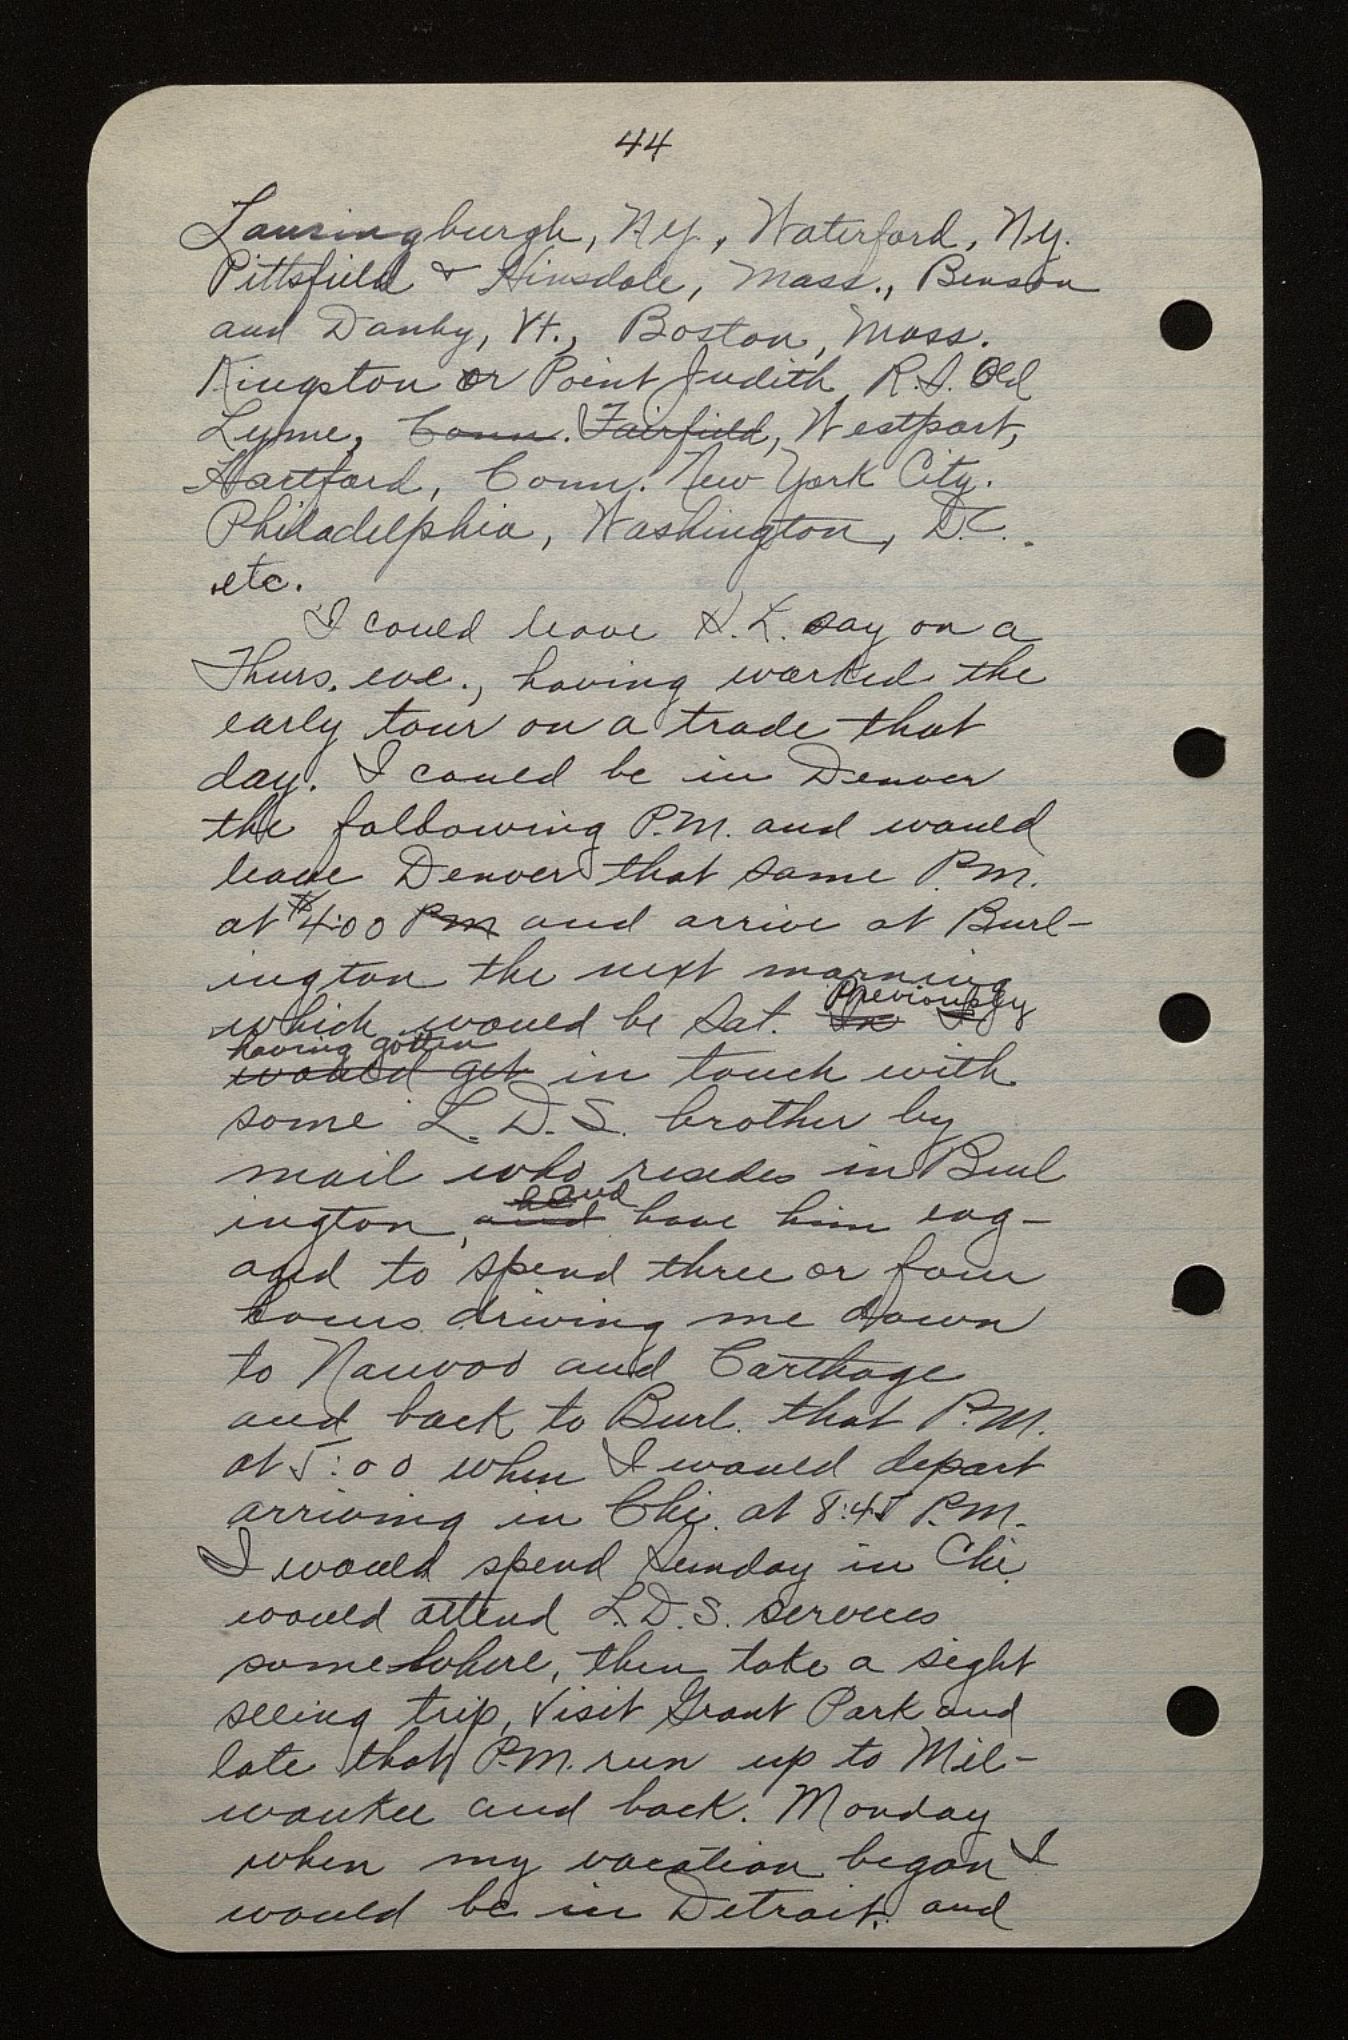 44
Lansingburgh, N.Y., Waterford, N.Y.
Pittsfield & Hinsdale, Mass., Benson
and Danby, Vt., Boston, Mass.
Kingston or Point Judith, R.I. Old
Lyme, Conn. Fairfield, Westport,
Hartford, Conn. New York City.
Philadelphia, Washington, D.C.
etc.
I could leave S.L. say on a
Thurs. eve., having worked the
early tour on a trade that
day. I could be in Denver
the following P.M. and would
leave Denver that same P.M.
at 4:00 PM and arrive at Burl-
ington the next morning
Previously
which would be Sat. In I
having gotten
would get in touch with
some L.D.S. brother by
mail who resides in Burl
and
ington, and have him eng-
aged to spend three or four
hours driving me down
to Nauvoo and Carthage
and back to Burl. that P.M.
at 5:00 when I would depart
arriving in Chi. at 8:45 P.M.
I would spend Sunday in Chi.
would attend L.D.S. services
somewhere, then take a sight
seeing trip, visit Grant Park and
late that P.M. run up to Mil-
waukee and back. Monday
when my vacation began I
would be in Detroit, and